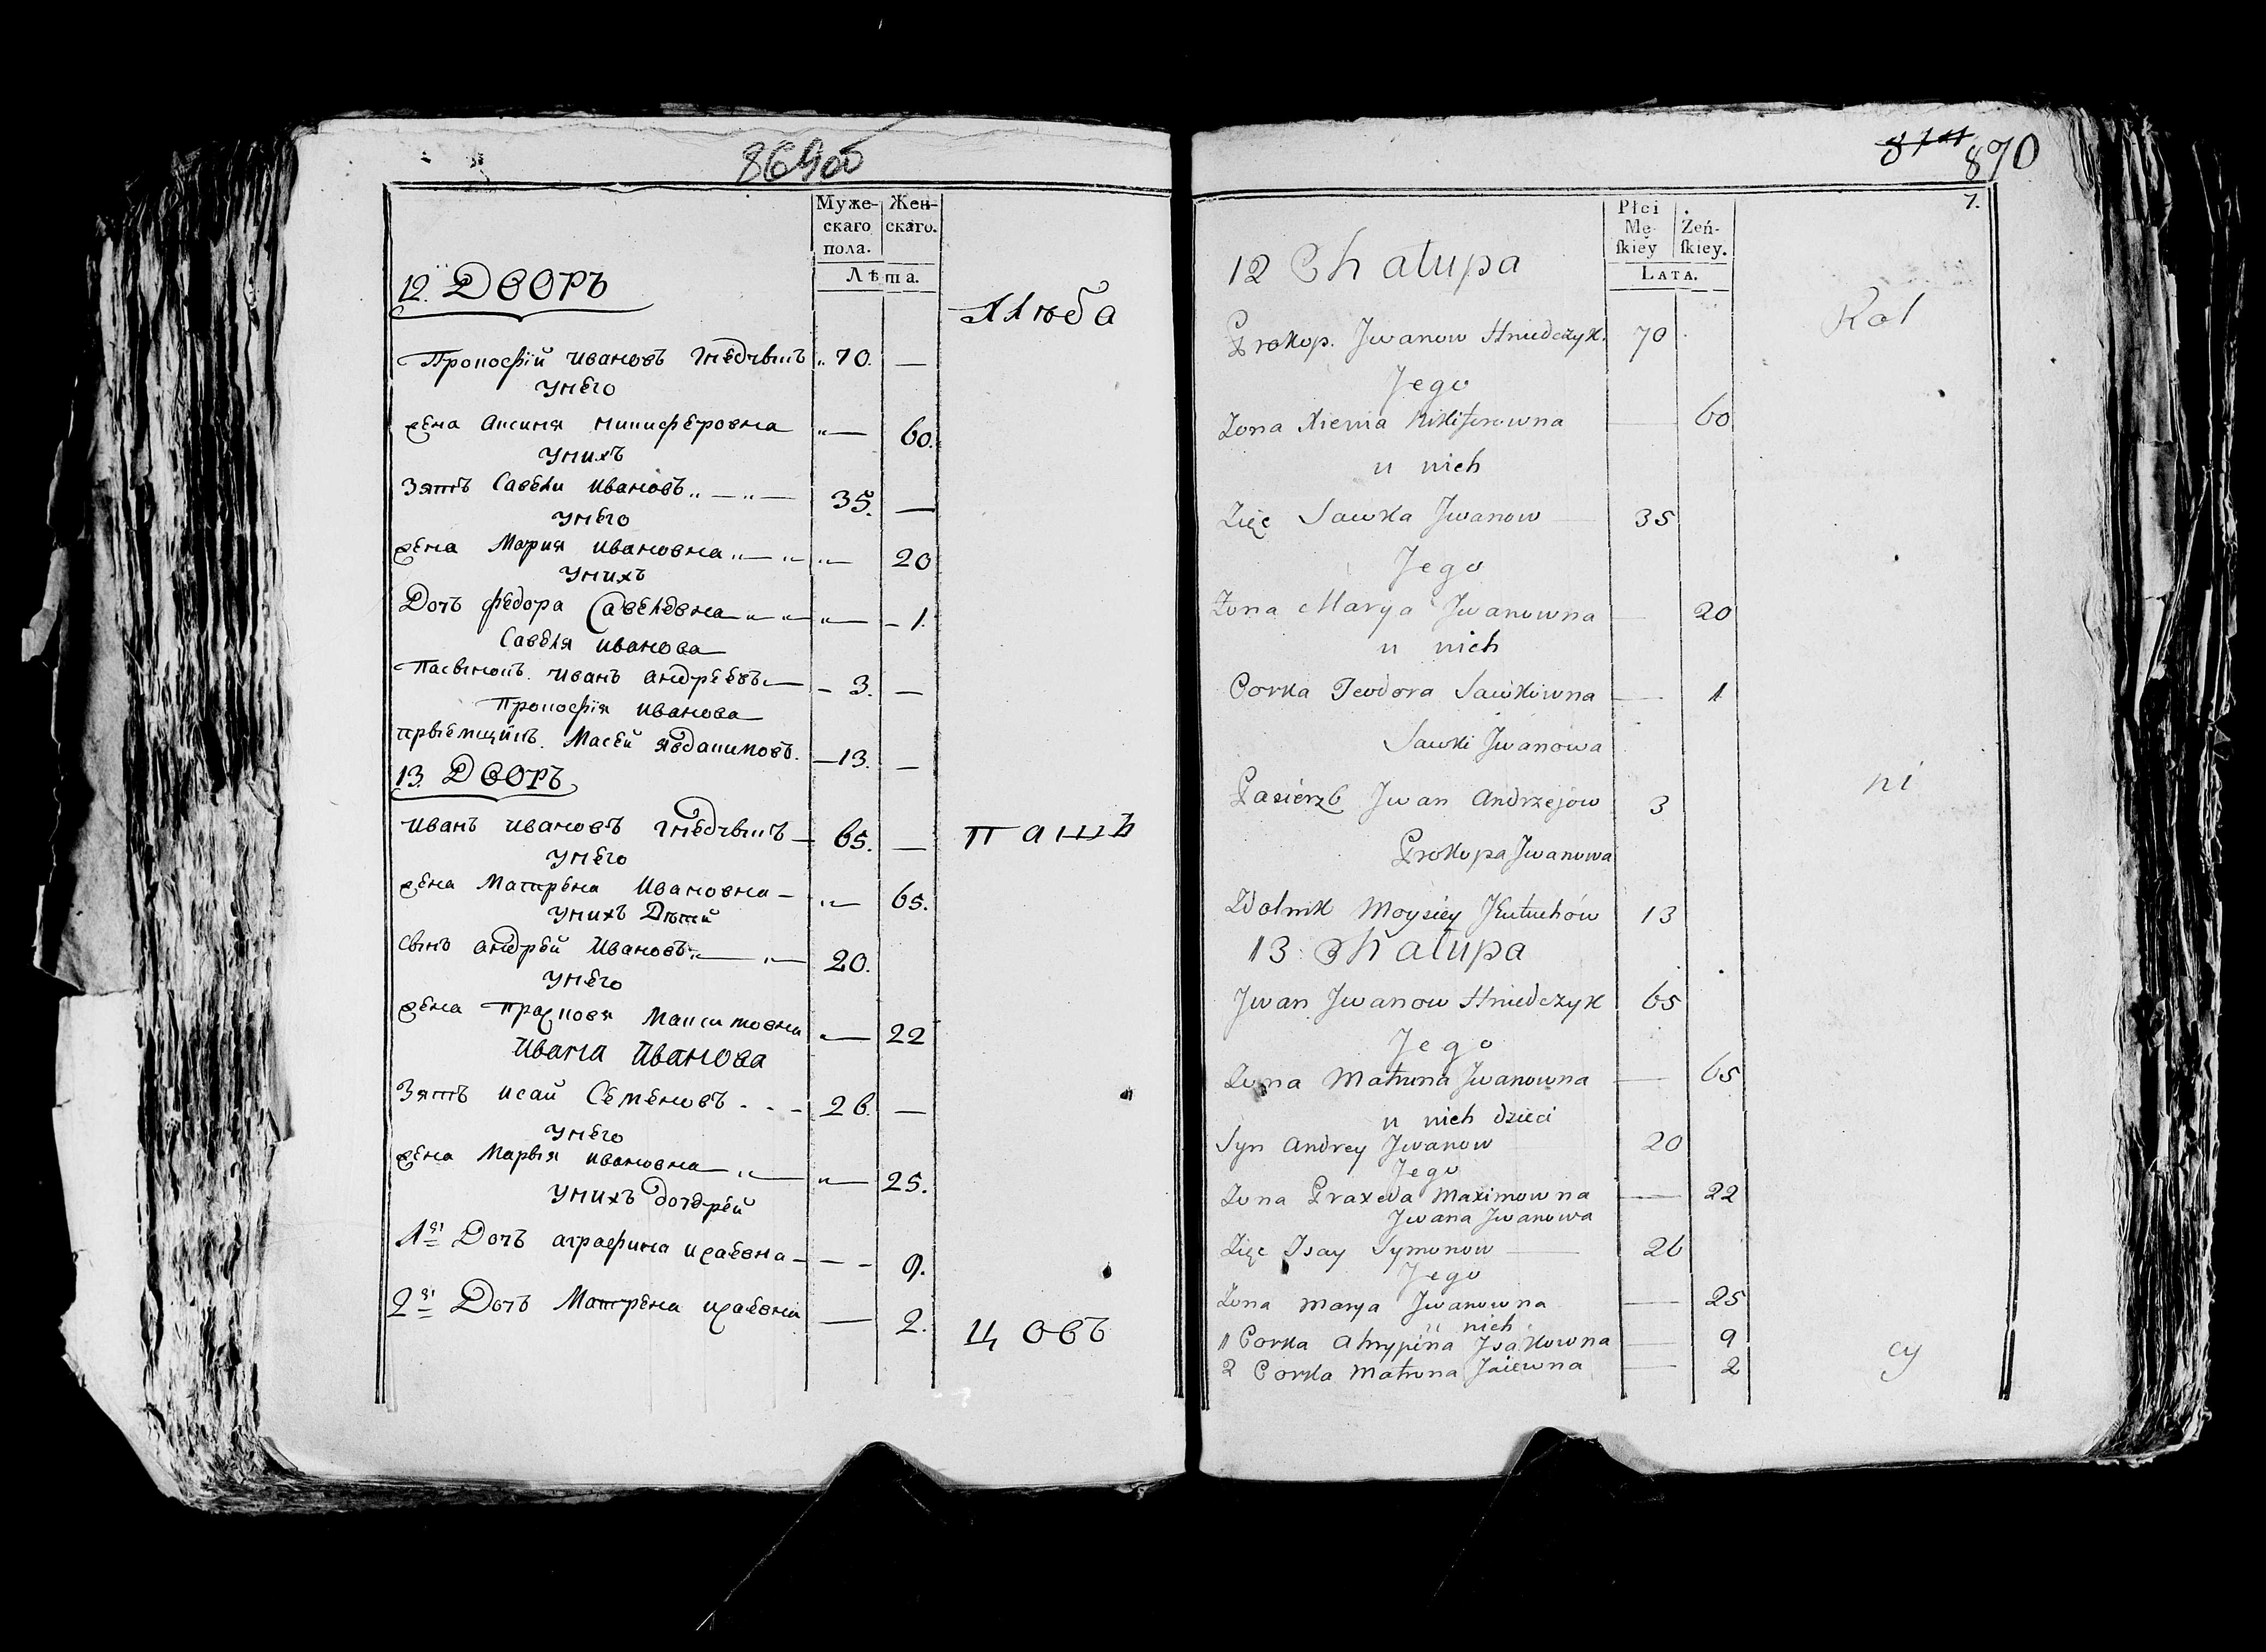 Муже-
скаго
пола.
Жен-
скаго.
Лѣта.
12. Дворъ
Хлѣба
Прокофій ивановъ гнедчикъ 70. —
унего
жена аксиня никиферовна — 60.
унихъ
Зять Савели ивановъ 35. —
унего
жена Мария ивановна — 20
унихъ
Дочъ федора Савелдвна — 1.
Савеля иванова
Пасынокъ иванъ андреевъ 3. —
Прокофія иванова
13. —
13. Дворъ
иванъ ивановъ гнедчикъ 65. —
пашь
унего
жена Матрена ивановна — 65.
унихъ Дѣтей
сынъ андрей ивановъ 20.
унего
жена Максимовна — 22
ивана иванова
Зять исай Семеновъ 26. —
унего
жена Марья ивановна — 25.
унихъ
1я Дочъ аграфина — 9.
2я Дочъ Матрена — 2.
цовъ
870
7.
Płci
Mę-
skiey
Żeń-
skiey.
LATA.
12 Chalupa
Kol
Prokop. Jwanow Hniedczyk. 70
Jego
Zona Xienia Nikiforowna — 60
u nich
Zięc Sawka Jwanow — 35
Jego
Zona Marya Jwanowna — 20
u nich
Corka Teodora Sawkowna — 1
Sawki Jwanowa
Pasierzb Jwan Andrzejow 3
ni
Prokopa Jwanowa
Moysiey 13
13 Chalupa
Jwan Jwanow Hniedczyk 65
Jego
Zona Matruna Jwanowna — 65
u nich dzieci
Syn Andrey Jwanow 20
Jego
Zona Praxeda Maximowna — 22
Jwana Jwanowa
Zięc Jsay Symonow — 26
Jego
Zona Marya Jwanowna — 25
u nich
1 Corka Ahrypina Jsakowna — 9
2 Corka Matruna Jaiewna — 2
cy